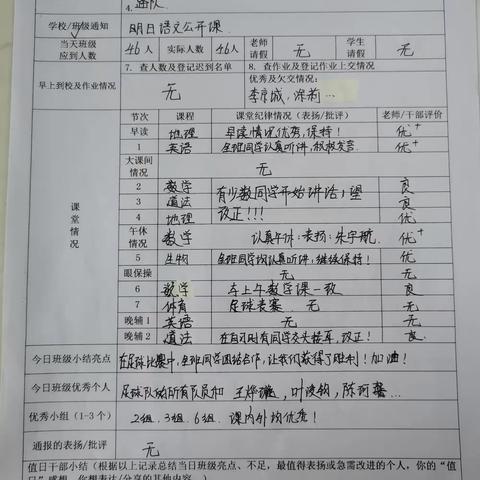 4.
学校/班级通知 明日语文公开课
当天班级应到人数 46人 实际人数 46人 老师请假 无 学生请假 无
7. 查人数及登记迟到名单 8. 查作业及登记作业上交情况
早上到校及作业情况 无 优秀及欠交情况:
课堂情况
节次 课程 课堂纪律情况(表扬/批评) 老师/干部评价
早读 地理 早读情况优秀,保持! 优+
1 英语 全班同学认真听讲,积极发言 优+
大课间情况 无
2 数学 有少数同学开始讲话,望改正!!! 良
3 道法 良
4 地理 优
午休情况 数学 认真午休:表扬:朱宇航. 优+
5 生物 全班同学均认真听讲,继续保持! 优
眼保操 无 无
6 数学 与上午数学课一致 良
7 体育 足球表赛 无 无
晚辅1 英语 无 无
晚辅2 道法 在自习时有同学交头接耳,改正! 良
今日班级小结亮点 在足球比赛中,全班同学团结合作,让我们获得了胜利!加油!
今日班级优秀个人 足球队的所有队员和
优秀小组(1-3个) 2组、3组、6组 课内外均优秀!
通报的表扬/批评 无
值日干部小结(根据以上记录总结当日班级亮点、不足,最值得表扬或急需改进的个人,你的“值
日”感想,你想表达/分享的其他内容